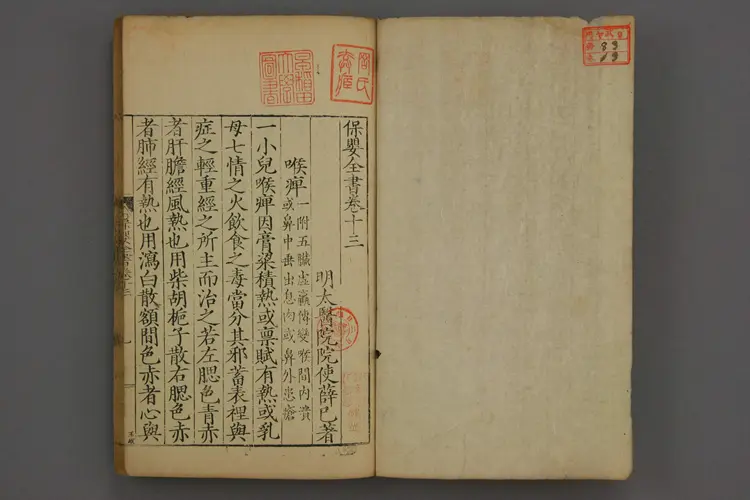 保嬰全書卷十三
明太醫院院使薛己著
喉痺一附五臟虛羸傳變喉間內潰
或鼻中蟲出息肉或鼻外患瘡
一小兒喉痺因膏粱積熱或稟賦有熱或乳
母七情之火飲食之毒當分其邪蓄表裡與
症之輕重經之所主而治之若左腮色青赤
者肝膽經風熱也用柴胡梔子散右腮色赤
者肺經有熱也用瀉白散額間色赤者心與
早稲田大學圖書
83